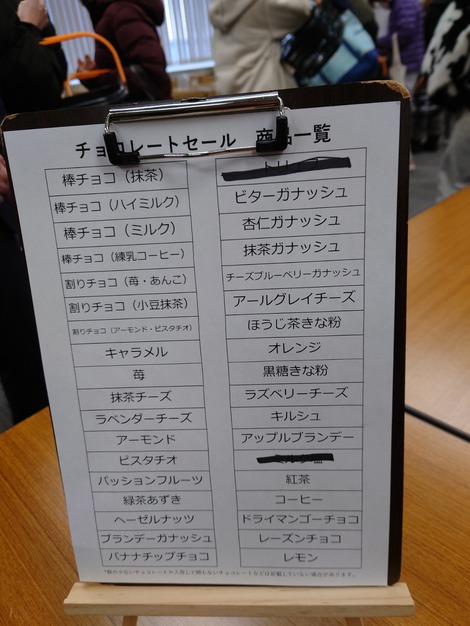 チョコレートセール 商品一覧
棒チョコ（抹茶）
棒チョコ（ハイミルク）
棒チョコ（ミルク）
棒チョコ（練乳コーヒー）
割りチョコ（苺・あんこ）
割りチョコ（小豆抹茶）
割りチョコ（アーモンド・ピスタチオ）
キャラメル
苺
抹茶チーズ
ラベンダーチーズ
アーモンド
ピスタチオ
パッションフルーツ
緑茶あずき
ヘーゼルナッツ
ブランデーガナッシュ
バナナチップチョコ
ビターガナッシュ
杏仁ガナッシュ
抹茶ガナッシュ
チーズブルーベリーガナッシュ
アールグレイチーズ
ほうじ茶きな粉
オレンジ
黒糖きな粉
ラズベリーチーズ
キルシュ
アップルブランデー
紅茶
コーヒー
ドライマンゴーチョコ
レーズンチョコ
レモン